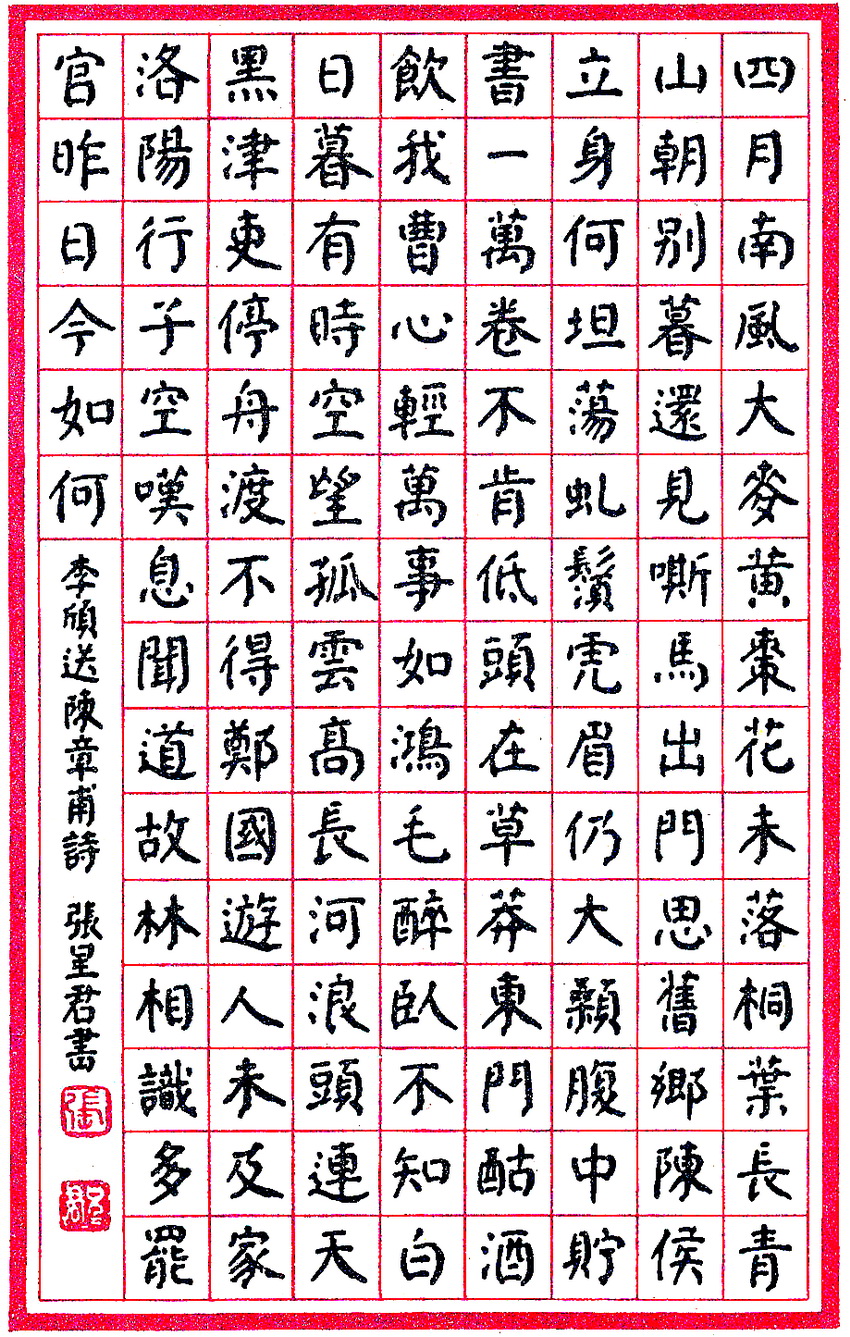 四月南風大麥黃棗花未落桐葉長青
山朝別暮還見嘶馬出門思舊鄉陳侯
立身何坦蕩虬鬚虎眉仍大顙腹中貯
書一萬卷不肯低頭在草莽東門酤酒
飲我曹心輕萬事如鴻毛醉臥不知白
日暮有時空望孤雲高長河浪頭連天
黑津吏停舟渡不得鄭國遊人未及家
洛陽行子空嘆息聞道故林相識多罷
官昨日今如何
李頎送陳章甫詩 張星君書
張